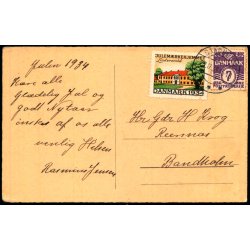 Julen 1934
Kære alle
Glædelig Jul og
godt Nytaar
ønskes af os alle
venlig Hilsen
Rasmus Jensen
JULEMÆRKEHJEMMET
DANMARK 1934
DANMARK
7
Hr. Gdr. H. Krog
Reersnæs
Bandholm